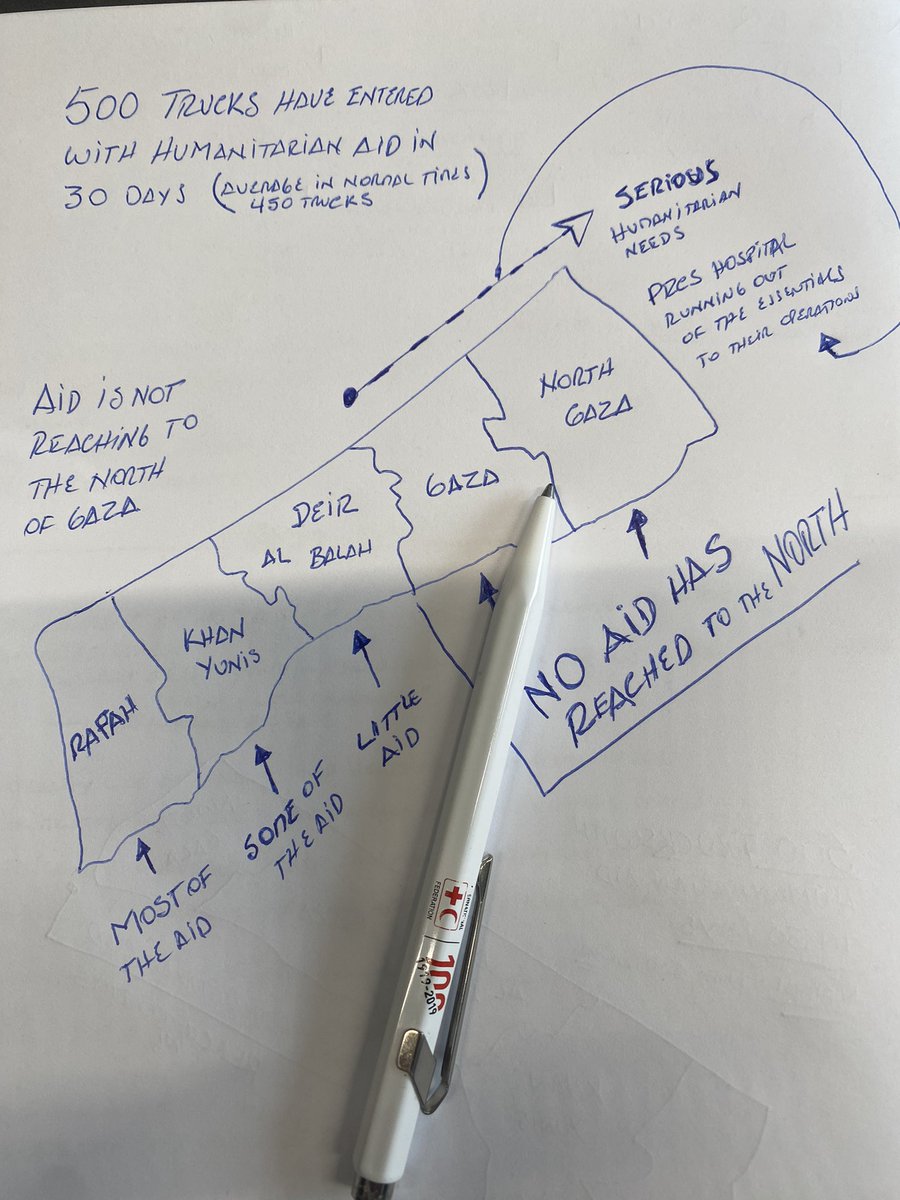 500 TRUCKS HAVE ENTERED
WITH HUMANITARIAN AID IN
30 DAYS (AVERAGE IN NORMAL TIMES
450 TRUCKS)
SERIOUS
HUMANITARIAN
NEEDS
PRCS HOSPITAL
RUNNING OUT
OF THE ESSENTIALS
TO THEIR OPERATIONS
AID IS NOT
REACHING TO
THE NORTH
OF GAZA
NORTH
GAZA
GAZA
DEIR
AL BALAH
KHAN
YUNIS
RAFAH
NO AID HAS
REACHED TO THE NORTH
LITTLE
AID
SOME OF
THE AID
MOST OF
THE AID
FEDERATION
100
1919-2019